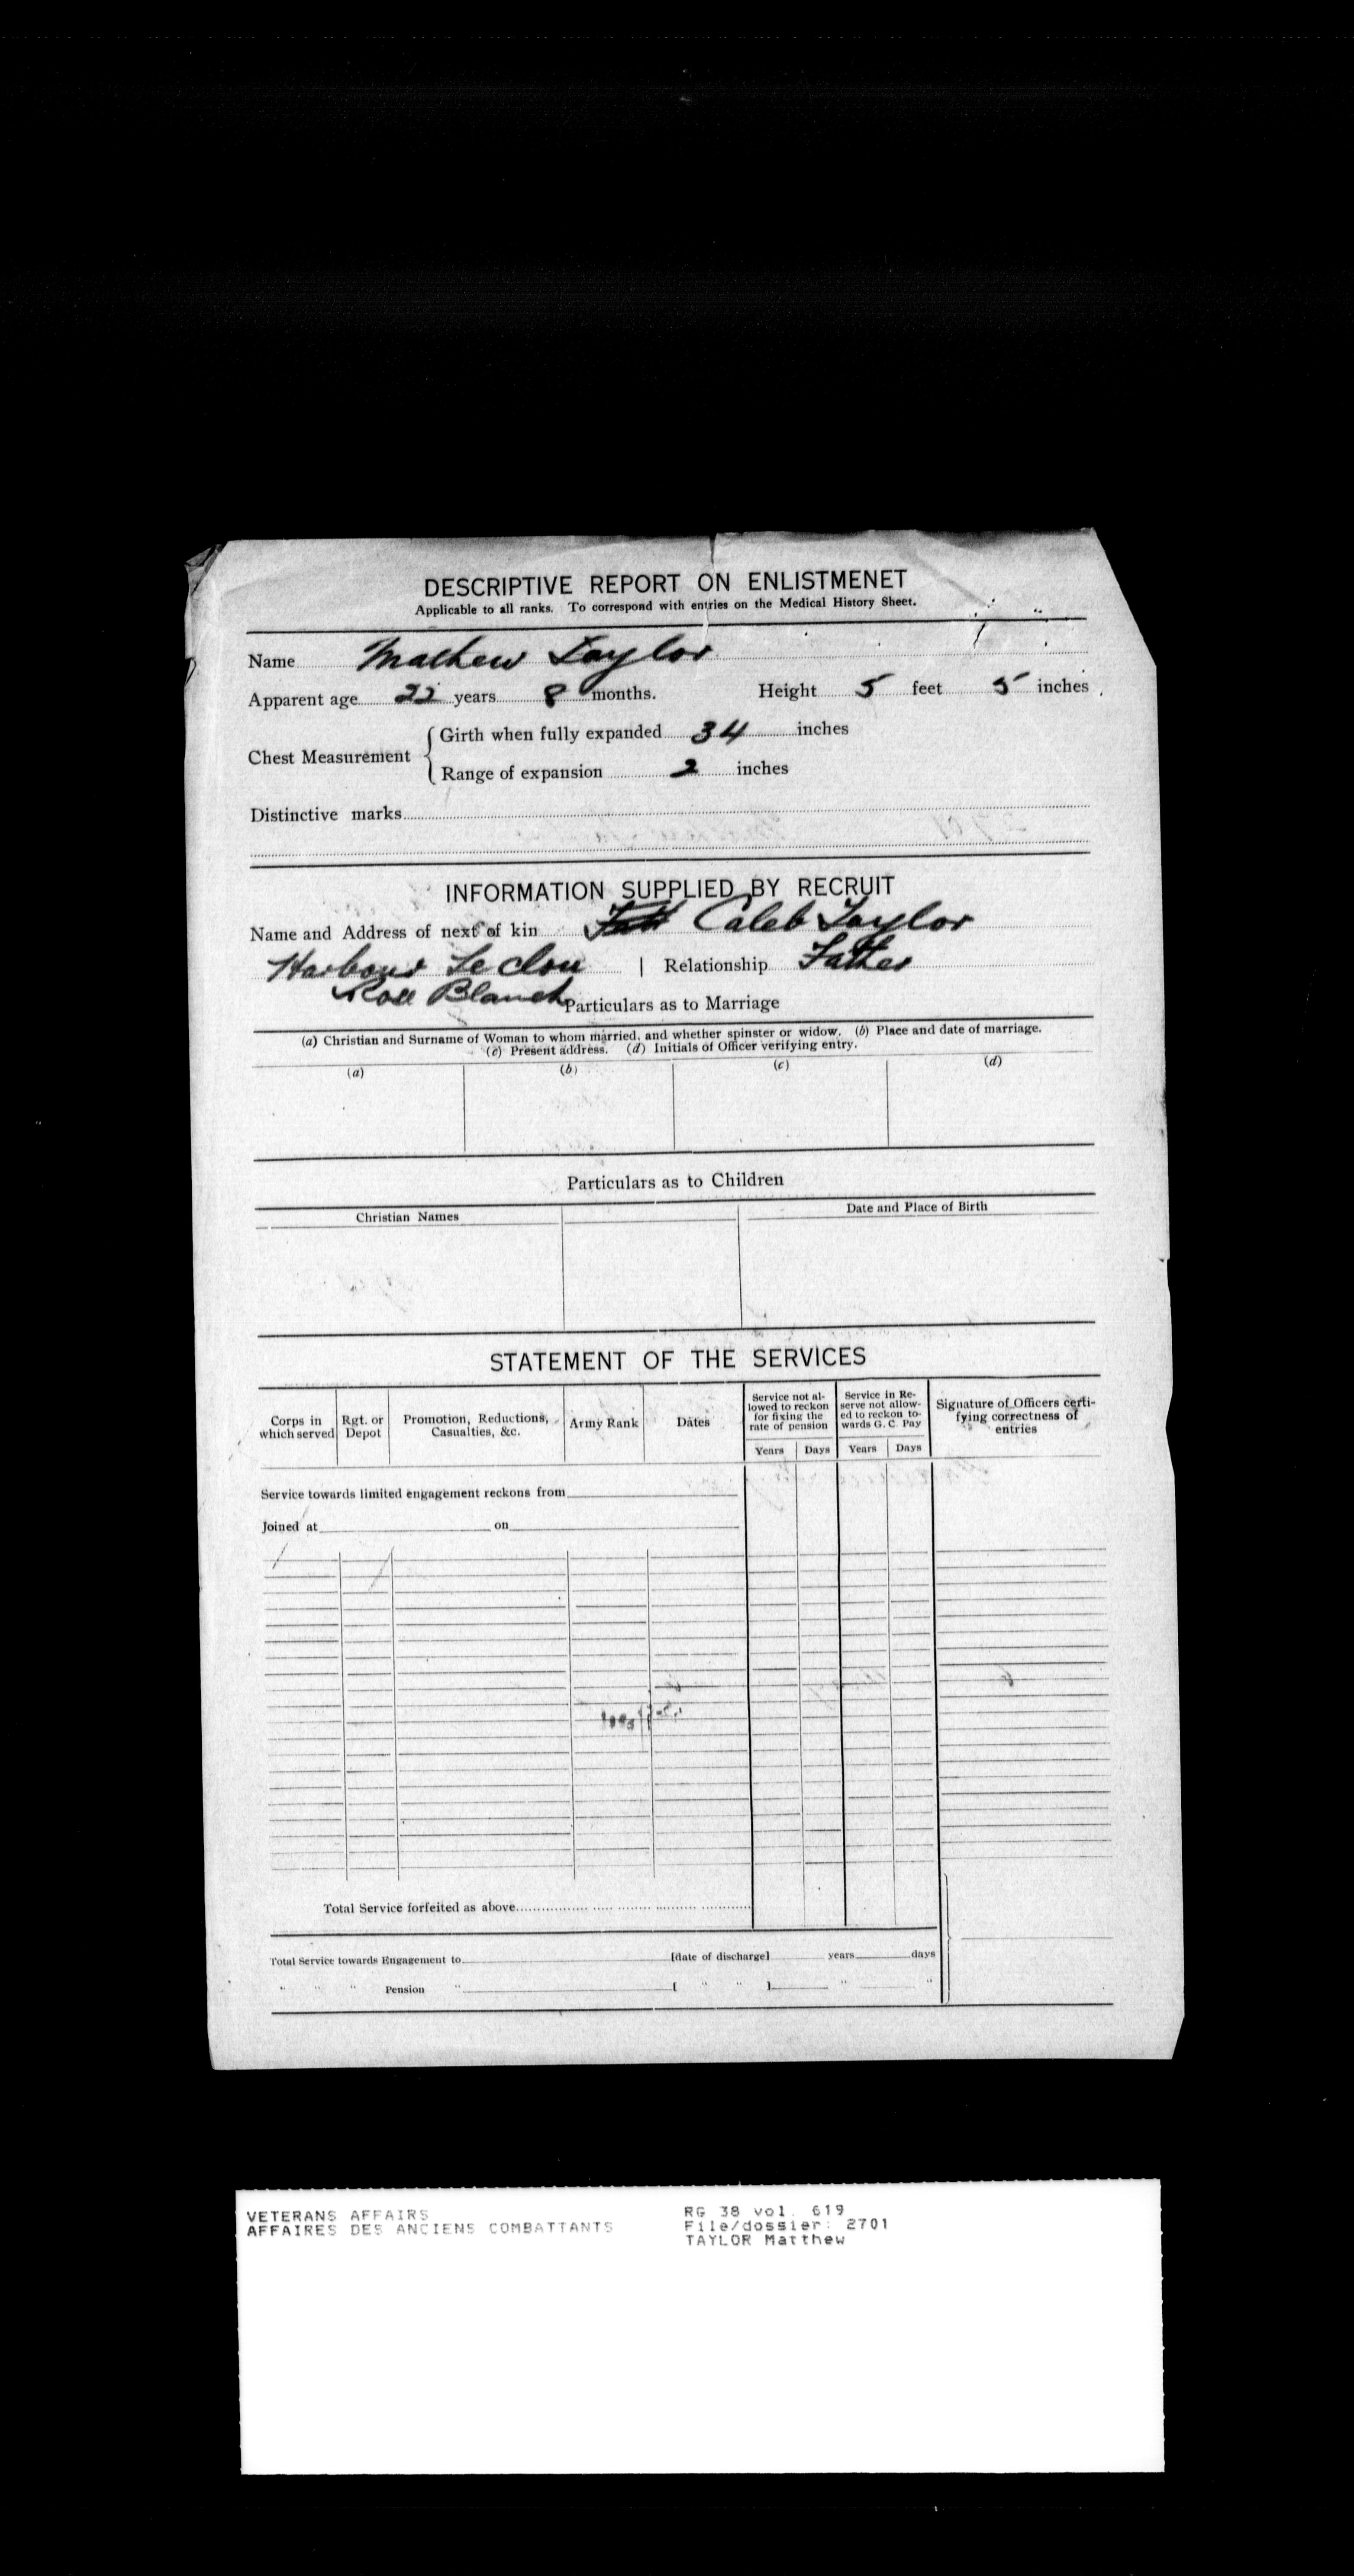 DESCRIPTIVE REPORT ON ENLISTMENET
Applicable to all ranks. To correspond with entries on the Medical History Sheet.
Name Mathew Taylor
Apparent age 22 years 8 months. Height 5 feet 5 inches
Chest Measurement { Girth when fully expanded 34 inches
Range of expansion 2 inches
Distinctive marks
INFORMATION SUPPLIED BY RECRUIT
Name and Address of next of kin Caleb Taylor
Harbour Le Clou | Relationship Father
Rose Blanch
Particulars as to Marriage
(a) Christian and Surname of Woman to whom married, and whether spinster or widow. (b) Place and date of marriage.
(c) Present address. (d) Initials of Officer verifying entry.
(a) (b) (c) (d)
Particulars as to Children
Christian Names Date and Place of Birth
STATEMENT OF THE SERVICES
Corps in which served Rgt. or Depot Promotion, Reductions, Casualties, &c. Army Rank Dates Service not allowed to reckon for fixing the rate of pension Service in Reserve not allowed to reckon towards G. C. Pay Signature of Officers certifying correctness of entries
Years Days Years Days
Service towards limited engagement reckons from
Joined at on
Total Service forfeited as above
Total Service towards Engagement to [date of discharge] years days
" " " Pension " [ " " ] " "
VETERANS AFFAIRS RG 38 vol. 619
AFFAIRES DES ANCIENS COMBATTANTS File/dossier: 2701
TAYLOR Matthew